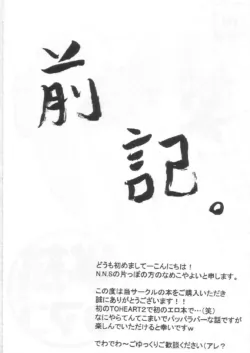 前記。
どうも初めまして―こんにちは！
N.N.Sの片っぽの方のなめこやよいと申します。
この度は当サークルの本をご購入いただき
誠にありがとうございます！！
初のTOHEART2で初のエロ本で…(笑)
なにやらてんてこまいでパッパラパーな話ですが
楽しんでいただけると幸いですw
でわでわ～ごゆっくりご歓談ください(アレ？